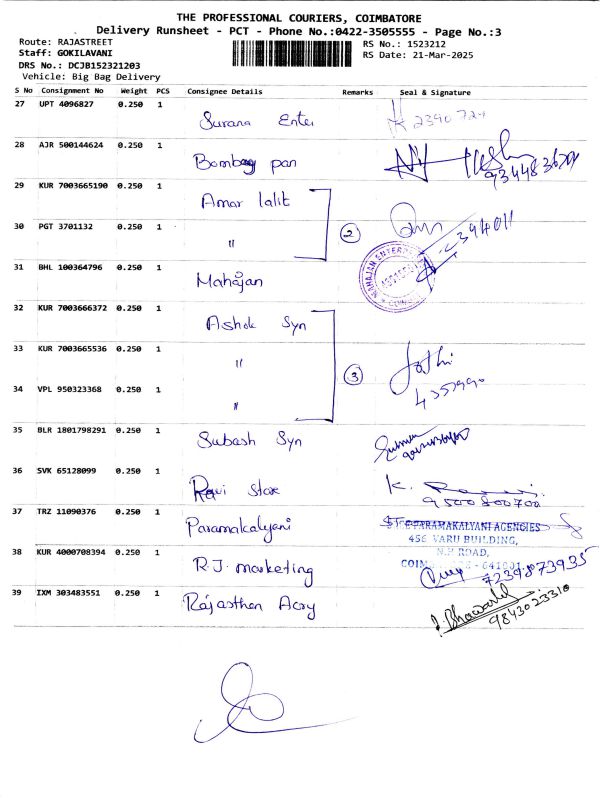 THE PROFESSIONAL COURIERS, COIMBATORE
Delivery Runsheet - PCT - Phone No.:0422-3505555 - Page No.:3
Route: RAJASTREET
RS No.: 1523212
Staff: GOKILAVANI
RS Date: 21-Mar-2025
DRS No.: DCJB152321203
Vehicle: Big Bag Delivery
S No Consignment No Weight PCS Consignee Details Remarks Seal & Signature
27 UPT 4096827 0.250 1 Surana Enter 2390 724
28 AJR 500144624 0.250 1 Bombay pan
29 KUR 7003665190 0.250 1 Amar lalit
30 PGT 3701132 0.250 1 " 2 394011
31 BHL 100364796 0.250 1 Mahajan
MAHAJAN ENTERP
32 KUR 7003666372 0.250 1 Ashok Syn
33 KUR 7003665536 0.250 1 " 3 Jothi
34 VPL 950323368 0.250 1 "
35 BLR 1801798291 0.250 1 Subash Syn
36 SVK 65128099 0.250 1 Ravi Star K.
9500800700
37 TRZ 11090376 0.250 1 Paramakalyani PARAMAKALYANI AGENCIES
456 VARU BUILDING,
N.P ROAD,
38 KUR 4000708394 0.250 1 R.J. marketing 641001
7239873935
39 IXM 303483551 0.250 1 Rajasthan Acry
9843023310